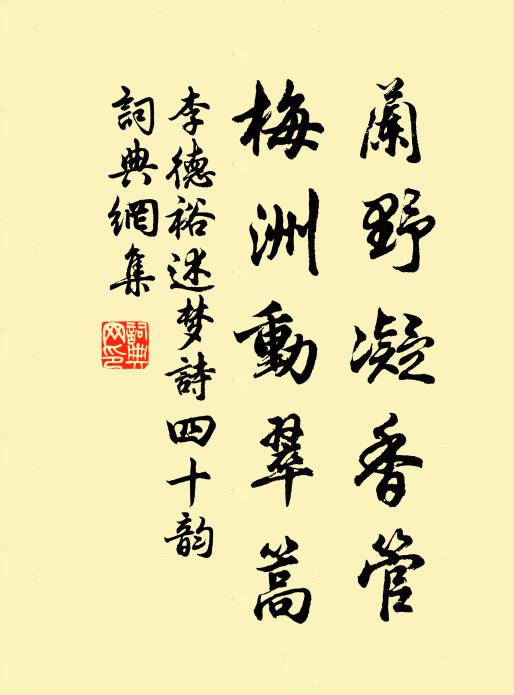 蘭野凝香管
梅洲動翠篙
李德裕述梦詩四十韵
詞典網集
詞典網印